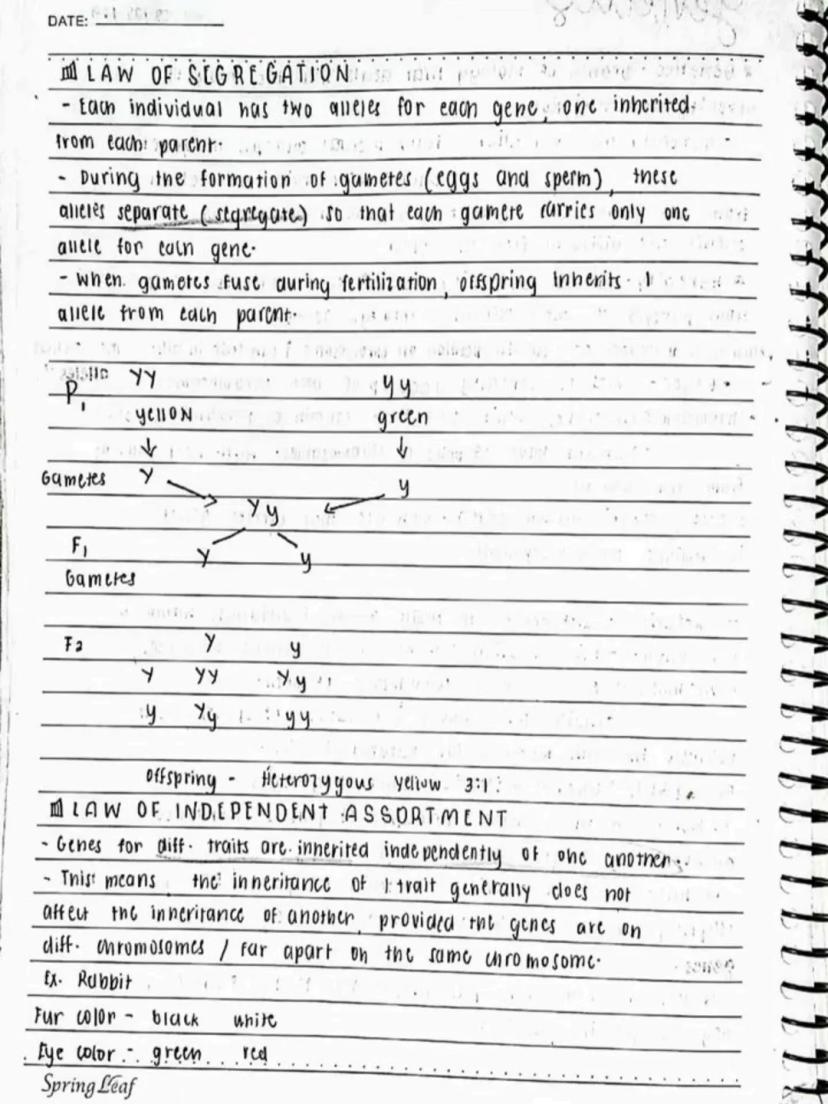 DATE:
LAW OF SEGREGATION
- Each individual has two alleles for each gene, one inherited
from each parent.
- During the formation of gametes (eggs and sperm), these
alleles separate (segregate) so that each gamete carries only one
allele for each gene.
- When gametes fuse during fertilization, offspring inherits 1
allele from each parent.
P1 YY yy
yellow green
↓ ↓
Gametes Y y
Yy
F1 Y y
Gametes
F2 Y y
Y YY Yy
y Yy yy
Offspring - Heterozygous Yellow 3:1
LAW OF INDEPENDENT ASSORTMENT
- Genes for diff. traits are inherited independently of one another.
- This means, the inheritance of 1 trait generally does not
affect the inheritance of another, provided the genes are on
diff. chromosomes / far apart on the same chromosome.
Ex. Rabbit
Fur color - black white
Eye color - green red
Spring Leaf